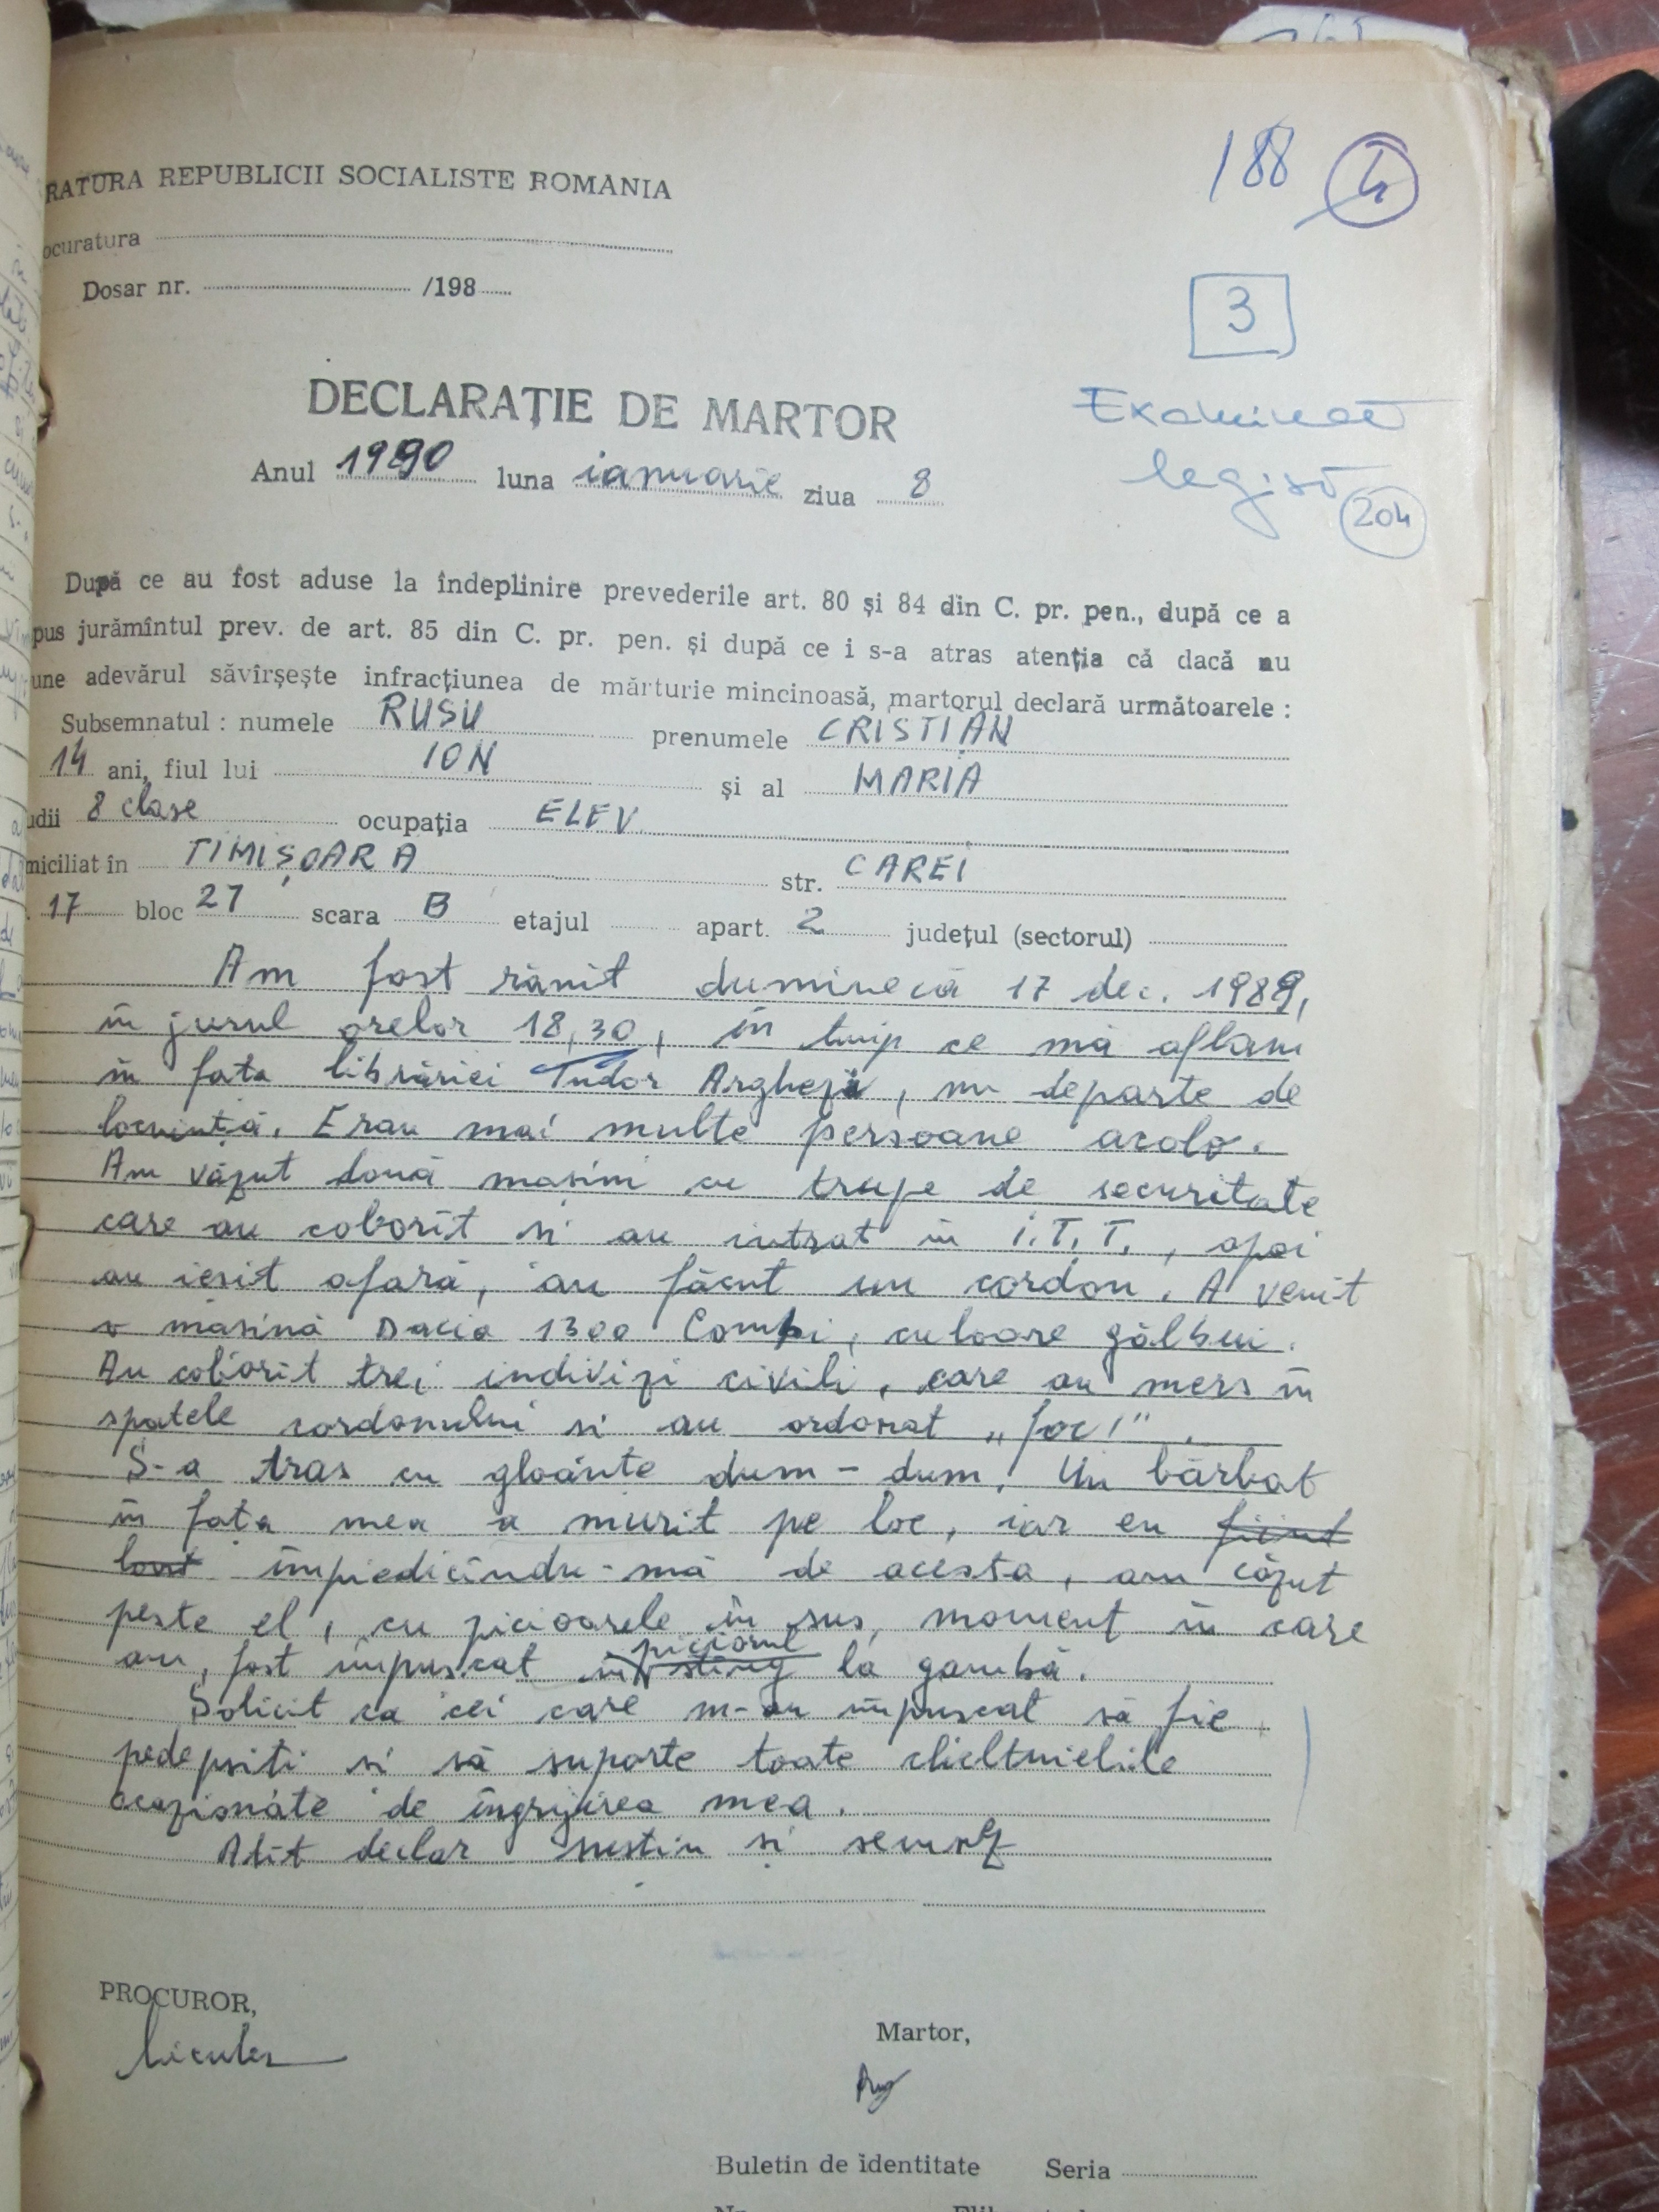 188 4
RATURA REPUBLICII SOCIALISTE ROMANIA
ocuratura
Dosar nr. /198
3
DECLARAȚIE DE MARTOR
Examinat
legist
204
Anul 1990 luna ianuarie ziua 8
După ce au fost aduse la îndeplinire prevederile art. 80 și 84 din C. pr. pen., după ce a
pus jurămîntul prev. de art. 85 din C. pr. pen. și după ce i s-a atras atenția că dacă nu
une adevărul săvîrșește infracțiunea de mărturie mincinoasă, martorul declară următoarele :
Subsemnatul : numele RUSU prenumele CRISTIAN
14 ani, fiul lui ION și al MARIA
udii 8 clase ocupația ELEV
miciliat în TIMIȘOARA str. CAREI
. 17 bloc 27 scara B etajul apart. 2 județul (sectorul)
Am fost rănit duminecă 17 dec. 1989,
în jurul orelor 18,30, în timp ce mă aflam
în fața librăriei Tudor Arghezi, nu departe de
locuință. Erau mai multe persoane acolo.
Am văzut două masini cu trupe de securitate
care au coborît si au intrat în I.T.T., apoi
au iesit afară, au făcut un cordon. A venit
o masină Dacia 1300 Combi, culoare gălbui.
Au coborît trei indivizi civili, care au mers în
spatele cordonului si au ordonat „foc!".
S-a tras cu gloanțe dum-dum. Un bărbat
în fața mea a murit pe loc, iar eu fiind
împiedicîndu-mă de acesta, am căzut
peste el, cu picioarele în sus, moment în care
am fost împuscat în piciorul stîng la gambă.
Solicit ca cei care m-au împuscat să fie
pedepsiti si să suporte toate cheltuielile
ocazionate de îngrijirea mea.
Atît declar sustin si semnez
PROCUROR,
Martor,
Buletin de identitate Seria